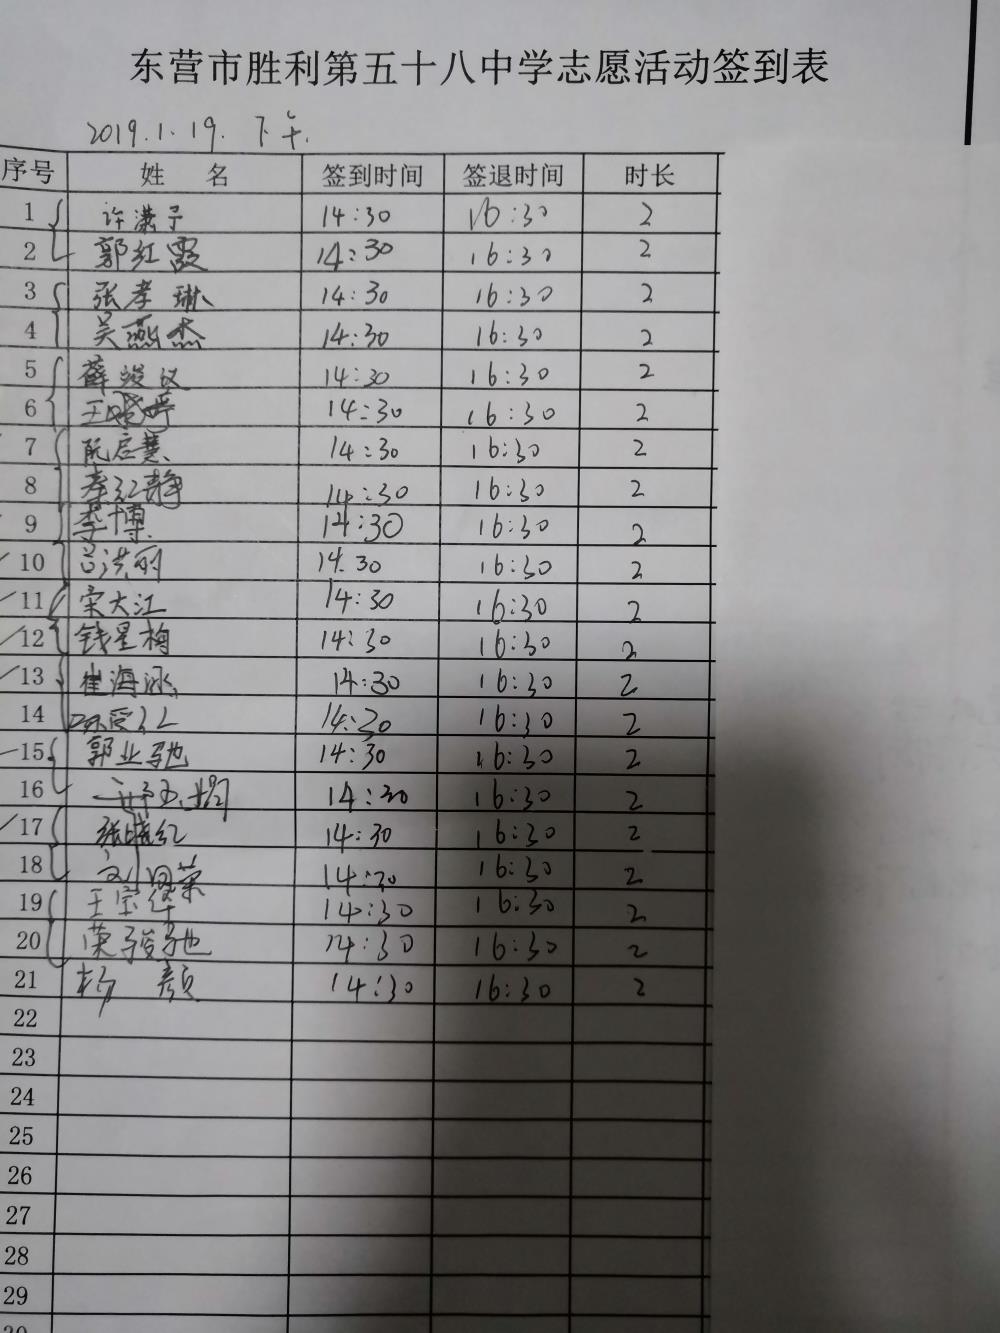 东营市胜利第五十八中学志愿活动签到表
2019.1.19. 下午.
序号 姓 名 签到时间 签退时间 时长
1 许潇予 14:30 16:30 2
2 郭红霞 14:30 16:30 2
3 张孝琳 14:30 16:30 2
4 吴燕杰 14:30 16:30 2
5 薛 14:30 16:30 2
6 王晓婷 14:30 16:30 2
7 阮启慧 14:30 16:30 2
8 秦红静 14:30 16:30 2
9 李博 14:30 16:30 2
10 吕洪丽 14:30 16:30 2
11 宋大江 14:30 16:30 2
12 钱星梅 14:30 16:30 2
13 崔海泳 14:30 16:30 2
14 14:30 16:30 2
15 郭业驰 14:30 16:30 2
16 14:30 16:30 2
17 张晓红 14:30 16:30 2
18 荣 14:30 16:30 2
19 王宝华 14:30 16:30 2
20 荣骏驰 14:30 16:30 2
21 杨 颜 14:30 16:30 2
22
23
24
25
26
27
28
29
30